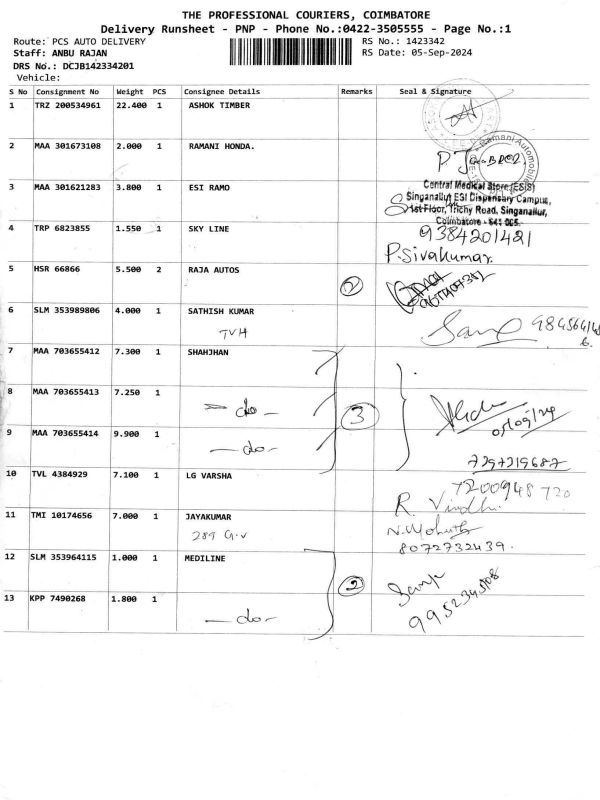 THE PROFESSIONAL COURIERS, COIMBATORE
Delivery Runsheet - PNP - Phone No.:0422-3505555 - Page No.:1
Route: PCS AUTO DELIVERY RS No.: 1423342
Staff: ANBU RAJAN RS Date: 05-Sep-2024
DRS No.: DCJB142334201
Vehicle:
S No Consignment No Weight PCS Consignee Details Remarks Seal & Signature
1 TRZ 200534961 22.400 1 ASHOK TIMBER
2 MAA 301673108 2.000 1 RAMANI HONDA.
Ramani Automobile
3 MAA 301621283 3.800 1 ESI RAMO
Central Medical Store (ESIS)
Singanallur ESI Dispensary Campus,
1st Floor, Trichy Road, Singanallur,
Coimbatore - 641 005.
4 TRP 6823855 1.550 1 SKY LINE 9384201421
P.Sivakumar.
5 HSR 66866 5.500 2 RAJA AUTOS 2
6 SLM 353989806 4.000 1 SATHISH KUMAR
TVH
7 MAA 703655412 7.300 1 SHAHJHAN
8 MAA 703655413 7.250 1
-do- 3
05/09/24
9 MAA 703655414 9.900 1
-do- 7397319687
10 TVL 4384929 7.100 1 LG VARSHA 7200948 720
R.
11 TMI 10174656 7.000 1 JAYAKUMAR
289 G.V 8072732439.
12 SLM 353964115 1.000 1 MEDILINE 2
13 KPP 7490268 1.800 1
-do-